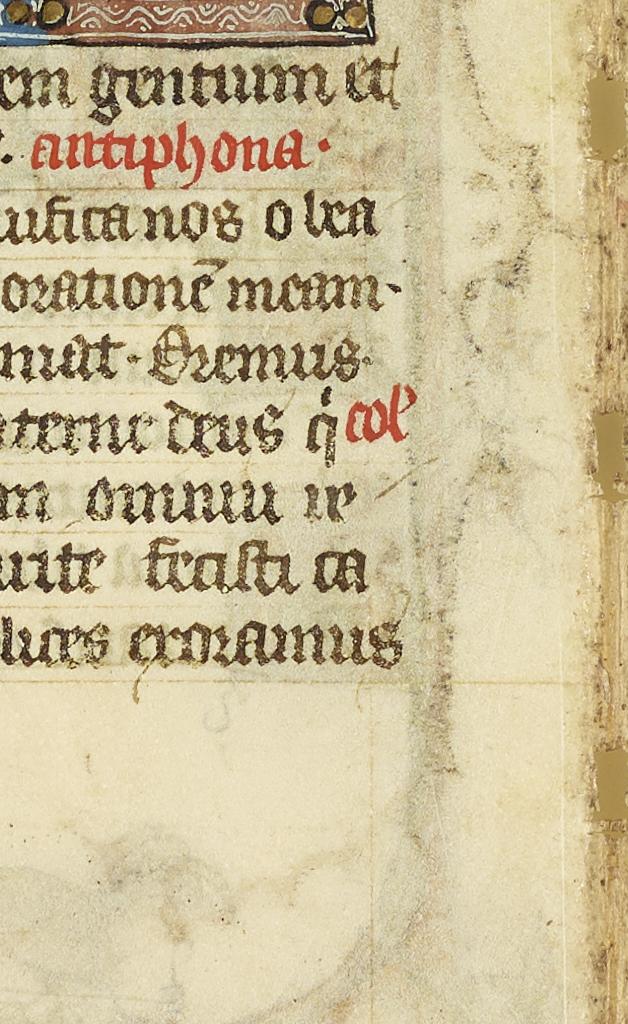 em gentium et
. antiphona.
iuifica nos o bea
orationē meam.
niat. Oremus.
eterne deus q̇ col'
m omniū re
uite fecisti ca
lices exoramus